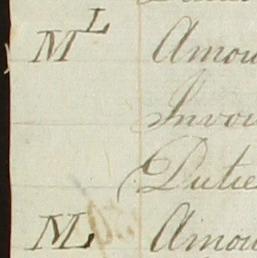 M L Amou
Invoi
Dutie
ML Amou